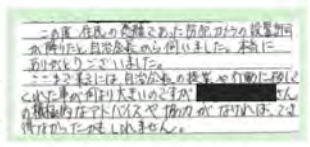 この度、住民の念願であった防犯カメラの設置許可
が降りたと自治会長から伺いました。本当に
ありがとうございました。
ここまで来るには、自治会長の提案や行動に移して
くれた事が何より大きいのですが さん
の積極的なアドバイスや協力がなければ、でき
得なかったかもしれません。